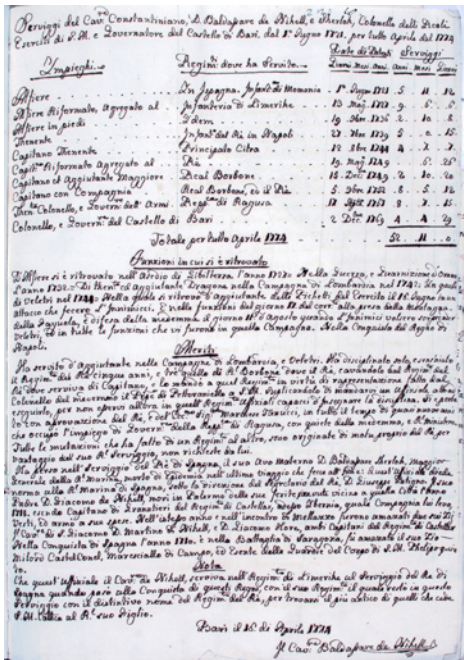 Serviggi del Cav.re Constantiniano, D. Baldasare de Nihell, e Sherloh, Colonello delli Reali
Eserciti di S.M. e Governatore del Castello di Bari, dal 1° Giugno 1721. per tutto Aprile del 1774
Date de Dispti Serviggi
Impieghi Regim.ti dove ha Servito Giorni Mesi Anni Anni Mesi Giorni
Alfiere In Spagna, Infant.a di Momonia 1° Giugno 1721 5 11 12
Alfiere Riformato, Agregato al Infanteria di Limerike 13 Mag. 1727 9 6 5
Alfiere in piedi Idem 19 1736 2 10 8
Thenente Infant.a del Rè in Napoli 27 1739 5 0 15
Capitano Thenente Principato Citra 12 1744 4 7 7
Capit.no Riformato Agregato al Rè 19 Mag. 1749 6 26
Capitano et Aggiutante Maggiore Real Borbone 15 1749 2 10 20
Capitano con Compagnia Real Borbone, ed il Rè 5 1752 8 5 12
Then.te Colonello, e Govern.re dell' Armi Regim.to di Ragusa 17 1761 8 7 15
Colonello, e Govern.re del Castello di Bari 2 Dec. 1769 4 4 29
Totale per tutto Aprile 1774 52 11 0
Funzioni in cui si è ritrovato
D'Alfiere si è ritrovato nell'Asedio di Gibilterra l'anno 1727. Nella Succeza, e Scarnizione di Orano
l'anno 1732. Di Then.te ed aggiutante Dragone nella Campagna di Lombardia nel 1742. In quella
di Veletri nel 1744. Nella quale si ritrovò d'Aggiutante delli Pichetti del Esercito il 16 Giugno in un
attacco che fecero gl'Inimicci. E nella funzione del giorno 17 del corr.te alla presa della Montagna
della Fayuola, e difesa della medema il giorno 11 d'Agosto quando gl'Inimici volevo sorprendere
Veletri, ed in tutte le funzioni che vi furono in quella Campagna. Nella Conquista del Regno di
Napoli.
Meriti
Ha servito d'Aggiutante nelle Campagne di Lombardia, e Veletri. Ha disciplinato solo essendo
il Regim.to del Rè cinque anni, e trè quello di R.l Borbone dove il Rè, cavandolo dal Regim.to del
Rè dove serviva di Capitano, lo mandò a quel Regim.to in virtù di rappresentazione fatta dal
Colonello del medesimo il Duge di Pettoraniello a S.M. suplicandolo di mandarvi un Ufficiale a
eseguirlo, per non esservi allora in quel Regim.to Ufficiali capaci d'insegnare la disciplina. Si portò
con aprovazione del R.l Ecc. Sig.r Marchese Tanucci, in tutto il tempo di quasi nove anni
che occupò l'impiego di Govern.re della Reg. di Ragusa, con quiete della medema, e R.l Ministro.
Tutte le mutazioni che ha fatto di un Regim.to al altro, sono originate di motu proprio del Rè, per
vantaggio del suo R.l Serviggio, non richieste da lui.
Ha perso nell'Serviggio del Rè di Spagna, il suo Avo Materno D. Baldasare Sherloh, Maggior
Generale della R.l Marina, morto di Epidemia nell'ultimo viaggio che fece nel
norma alla R.l Marina di Spagna, sotto la direzione del Secretario del Rè, D. Giuseppe Patigno. Il suo
Padre D. Giacomo de Nihell, morì in Palermo delle sue ferite, avute vicino a quella Città l'anno
1718. essendo Capitano di Granatieri del Regim.to di Castellar, adesso Ibernia, quale Compagnia lui levò
Vestì, ed armò a sue spese. Nell'istesso anno nell'incontro di Melazzo furono amazati due suoi Zii
Il Cav.re di S. Giacomo D. Martino de Nihell, e D. Giacomo Flore, ambi Capitani del Regim.to di Castellar
Nella Conquista di Spagna l'anno 1710. e nella Battaglia di Saragoza, fù amazato il suo Zio
Milord Castel Conel, Maresciallo di Campo, ed Esente delle Guardie del Corpo di S.M. Phelipe quinto.
Nota
Che quest'Ufficiale il Cav.re de Nihell, serviva nell'Regim.to di Limerike al Serviggio del Rè di
Spagna quando passò alla Conquista di questi Regni, con il suo Regim.to il quale restò in questo
Serviggio con il distintivo nome del Regim.to del Rè, per trovarsi il più antico di quelli che cede
S.M. Catt.ca al R.l suo Figlio.
Bari il 16 di Aprile 1774
Il Cav.re Baldasare de Nihell